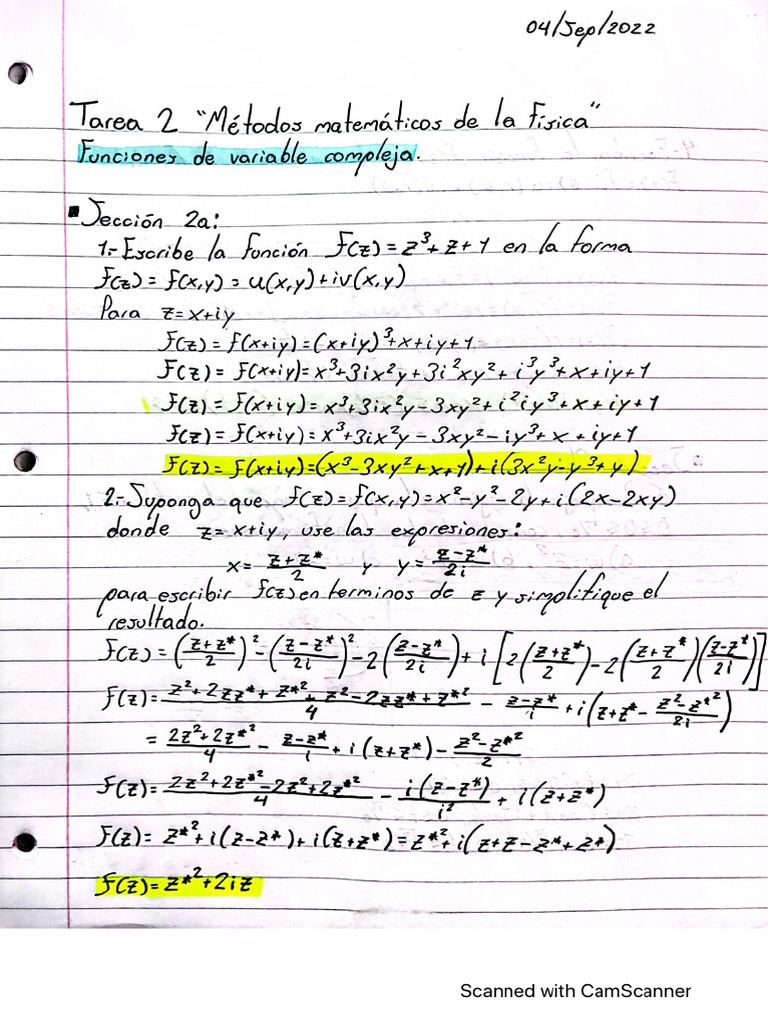 04/Sep/2022
Tarea 2 "Métodos matemáticos de la Física"
Funciones de variable compleja.
▪ Sección 2a:
1.- Escribe la función f(z) = z³ + z + 1 en la forma
f(z) = f(x,y) = u(x,y) + iv(x,y)
Para z = x+iy
f(z) = f(x+iy) = (x+iy)³ + x + iy + 1
f(z) = f(x+iy) = x³ + 3ix²y + 3i²xy² + i³y³ + x + iy + 1
f(z) = f(x+iy) = x³ + 3ix²y - 3xy² + i²iy³ + x + iy + 1
f(z) = f(x+iy) = x³ + 3ix²y - 3xy² - iy³ + x + iy + 1
f(z) = f(x+iy) = (x³ - 3xy² + x + 1) + i(3x²y - y³ + y)
2.- Suponga que f(z) = f(x,y) = x² - y² - 2y + i(2x - 2xy)
donde z = x+iy, use las expresiones:
x = (z+z*)/2 y y = (z-z*)/2i
para escribir f(z) en terminos de z y simplifique el
resultado.
f(z) = ((z+z*)/2)² - ((z-z*)/2i)² - 2((z-z*)/2i) + i[2((z+z*)/2) - 2((z+z*)/2)((z-z*)/2i)]
f(z) = (z² + 2zz* + z*² + z² - 2zz* + z*²)/4 - (z-z*)/i + i(z+z* - (z²-z*²)/2i)
= (2z² + 2z*²)/4 - (z-z*)/i + i(z+z*) - (z²-z*²)/2
f(z) = (2z² + 2z*² - 2z² + 2z*²)/4 - i(z-z*)/i² + i(z+z*)
f(z) = z*² + i(z-z*) + i(z+z*) = z*² + i(z+z-z*+z*)
f(z) = z*² + 2iz
Scanned with CamScanner